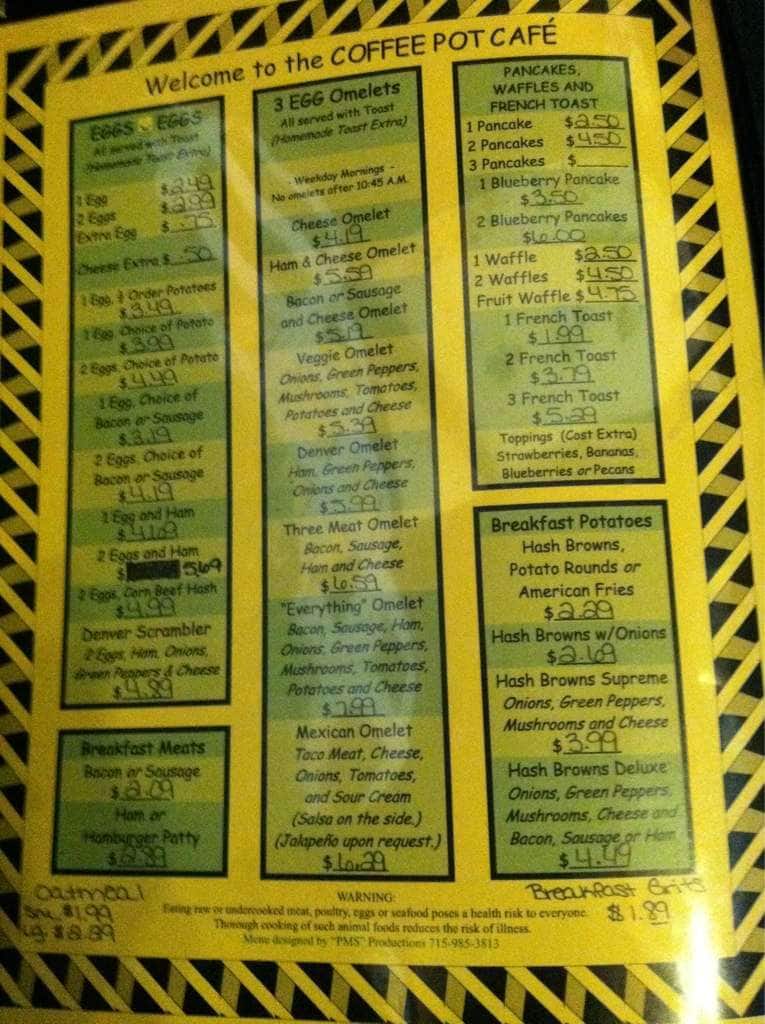 Welcome to the COFFEE POT CAFÉ
EGGS EGGS
All served with Toast
(Homemade Toast Extra)
1 Egg $2.49
2 Eggs $2.99
Extra Egg $.75
Cheese Extra $.50
1 Egg, ½ Order Potatoes
$3.49
1 Egg, Choice of Potato
$3.99
2 Eggs, Choice of Potato
$4.49
1 Egg, Choice of
Bacon or Sausage
$3.19
2 Eggs, Choice of
Bacon or Sausage
$4.19
1 Egg and Ham
$4.69
2 Eggs and Ham
$ 5.69
2 Eggs, Corn Beef Hash
$4.99
Denver Scrambler
2 Eggs, Ham, Onions,
Green Peppers & Cheese
$4.89
Breakfast Meats
Bacon or Sausage
$2.09
Ham or
Hamburger Patty
$2.89
Oatmeal
Sm. $1.99
Lg. $2.89
3 EGG Omelets
All served with Toast
(Homemade Toast Extra)
- Weekday Mornings -
No omelets after 10:45 A.M.
Cheese Omelet
$4.19
Ham & Cheese Omelet
$5.59
Bacon or Sausage
and Cheese Omelet
$5.19
Veggie Omelet
Onions, Green Peppers,
Mushrooms, Tomatoes,
Potatoes and Cheese
$5.39
Denver Omelet
Ham, Green Peppers,
Onions and Cheese
$5.99
Three Meat Omelet
Bacon, Sausage,
Ham and Cheese
$6.59
"Everything" Omelet
Bacon, Sausage, Ham,
Onions, Green Peppers,
Mushrooms, Tomatoes,
Potatoes and Cheese
$7.99
Mexican Omelet
Taco Meat, Cheese,
Onions, Tomatoes,
and Sour Cream
(Salsa on the side.)
(Jalapeño upon request.)
$6.29
PANCAKES,
WAFFLES AND
FRENCH TOAST
1 Pancake $2.50
2 Pancakes $4.50
3 Pancakes $
1 Blueberry Pancake
$3.50
2 Blueberry Pancakes
$6.00
1 Waffle $2.50
2 Waffles $4.50
Fruit Waffle $4.75
1 French Toast
$1.99
2 French Toast
$3.79
3 French Toast
$5.29
Toppings (Cost Extra)
Strawberries, Bananas,
Blueberries or Pecans
Breakfast Potatoes
Hash Browns,
Potato Rounds or
American Fries
$2.29
Hash Browns w/Onions
$2.69
Hash Browns Supreme
Onions, Green Peppers,
Mushrooms and Cheese
$3.99
Hash Browns Deluxe
Onions, Green Peppers,
Mushrooms, Cheese and
Bacon, Sausage or Ham
$4.49
Breakfast Grits
$1.89
WARNING:
Eating raw or undercooked meat, poultry, eggs or seafood poses a health risk to everyone.
Thorough cooking of such animal foods reduces the risk of illness.
Menu designed by "PMS" Productions 715-985-3813